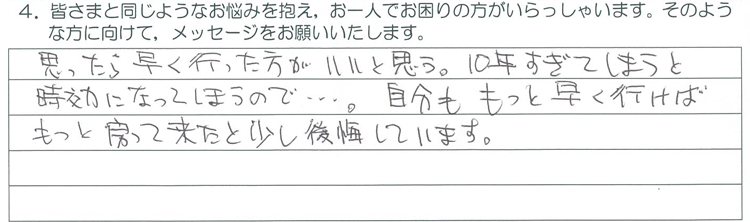 4. 皆さまと同じようなお悩みを抱え，お一人でお困りの方がいらっしゃいます。そのよう
な方に向けて，メッセージをお願いいたします。
思ったら早く行った方がいいと思う。10年すぎてしまうと
時効になってしまうので…。自分ももっと早く行けば
もっと戻って来たと少し後悔しています。